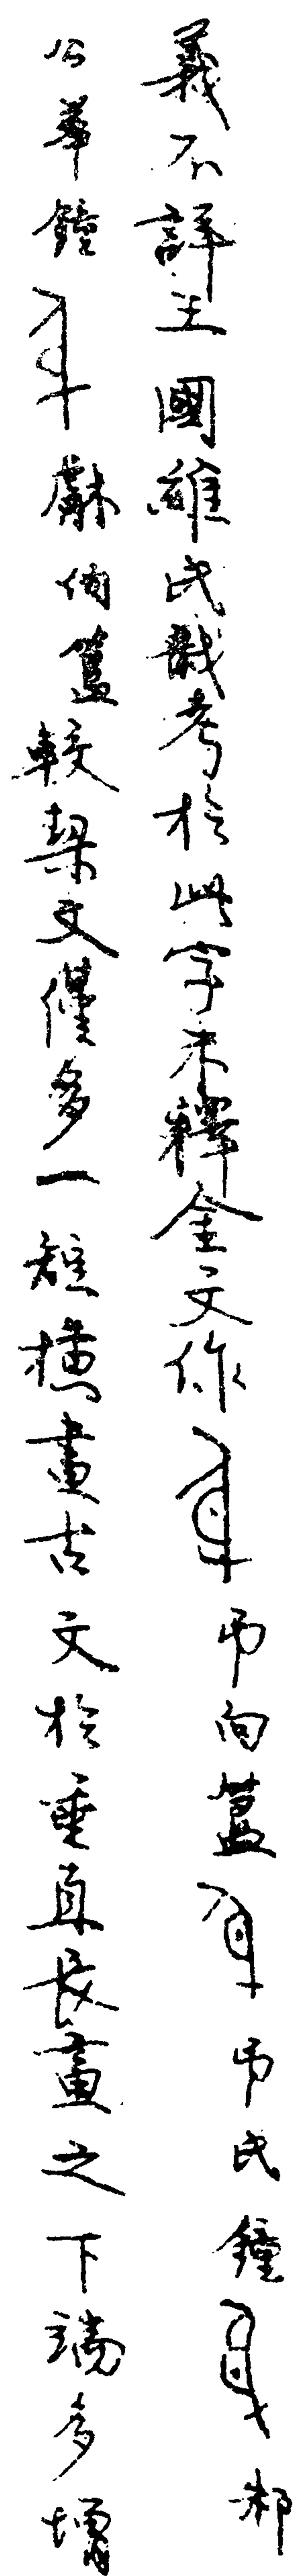 義不詳王國維氏戩考於此字未釋金文作弔向簋弔氏鐘邾
公華鐘獻伯簋較栔文僅多一短橫畫古文於垂直長畫之下端多增